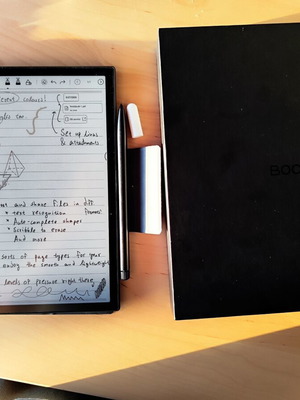 colours!
Set up links
& attachments
and share files in diff
* text recognition formats
* Auto-complete shapes
* Scribble to erase
And more
sorts of page types for your
enjoy the smooth and lightweight
levels of pressure right there
BOO